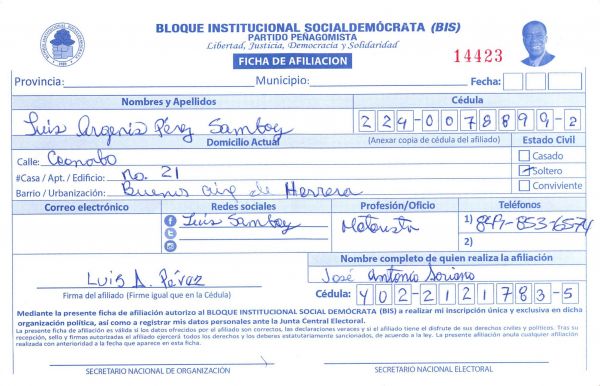 BLOQUE INSTITUCIONAL SOCIALDEMÓCRATA (BIS)
PARTIDO PEÑAGOMISTA
Libertad, Justicia, Democracia y Solidaridad
FICHA DE AFILIACION
14423
Provincia: Municipio: Fecha:
Nombres y Apellidos Cédula
Luis Argenis Pérez Samboy 224-0078899-2
Domicilio Actual (Anexar copia de cédula del afiliado) Estado Civil
Calle: Caonabo Casado
#Casa / Apt. / Edificio: no. 21 Soltero
Barrio / Urbanización: Buenos de Herrera Conviviente
Correo electrónico Redes sociales Profesión/Oficio Teléfonos
Luis Samboy Motorista 1) 849-853-6574
2)
Nombre completo de quien realiza la afiliación
Luis A. Pérez José Antonio Soriano
Firma del afiliado (Firme igual que en la Cédula) Cédula: 402-2121783-5
Mediante la presente ficha de afiliación autorizo al BLOQUE INSTITUCIONAL SOCIAL DEMÓCRATA (BIS) a realizar mi inscripción única y exclusiva en dicha
organización política, así como a registrar mis datos personales ante la Junta Central Electoral.
La presente ficha de afiliación es válida si los datos ofrecidos por el afiliado son correctos, las declaraciones veraces y si el afiliado tiene el disfrute de sus derechos civiles y políticos. Tras su
recepción, sello y firmas autorizadas el afiliado ejercerá todos los derechos y los deberes estatutariamente sancionados, de acuerdo a la ley. La presente afiliación anula cualquier afiliación
realizada con anterioridad a la fecha que aparece en esta ficha.
SECRETARIO NACIONAL DE ORGANIZACIÓN SECRETARIO NACIONAL ELECTORAL